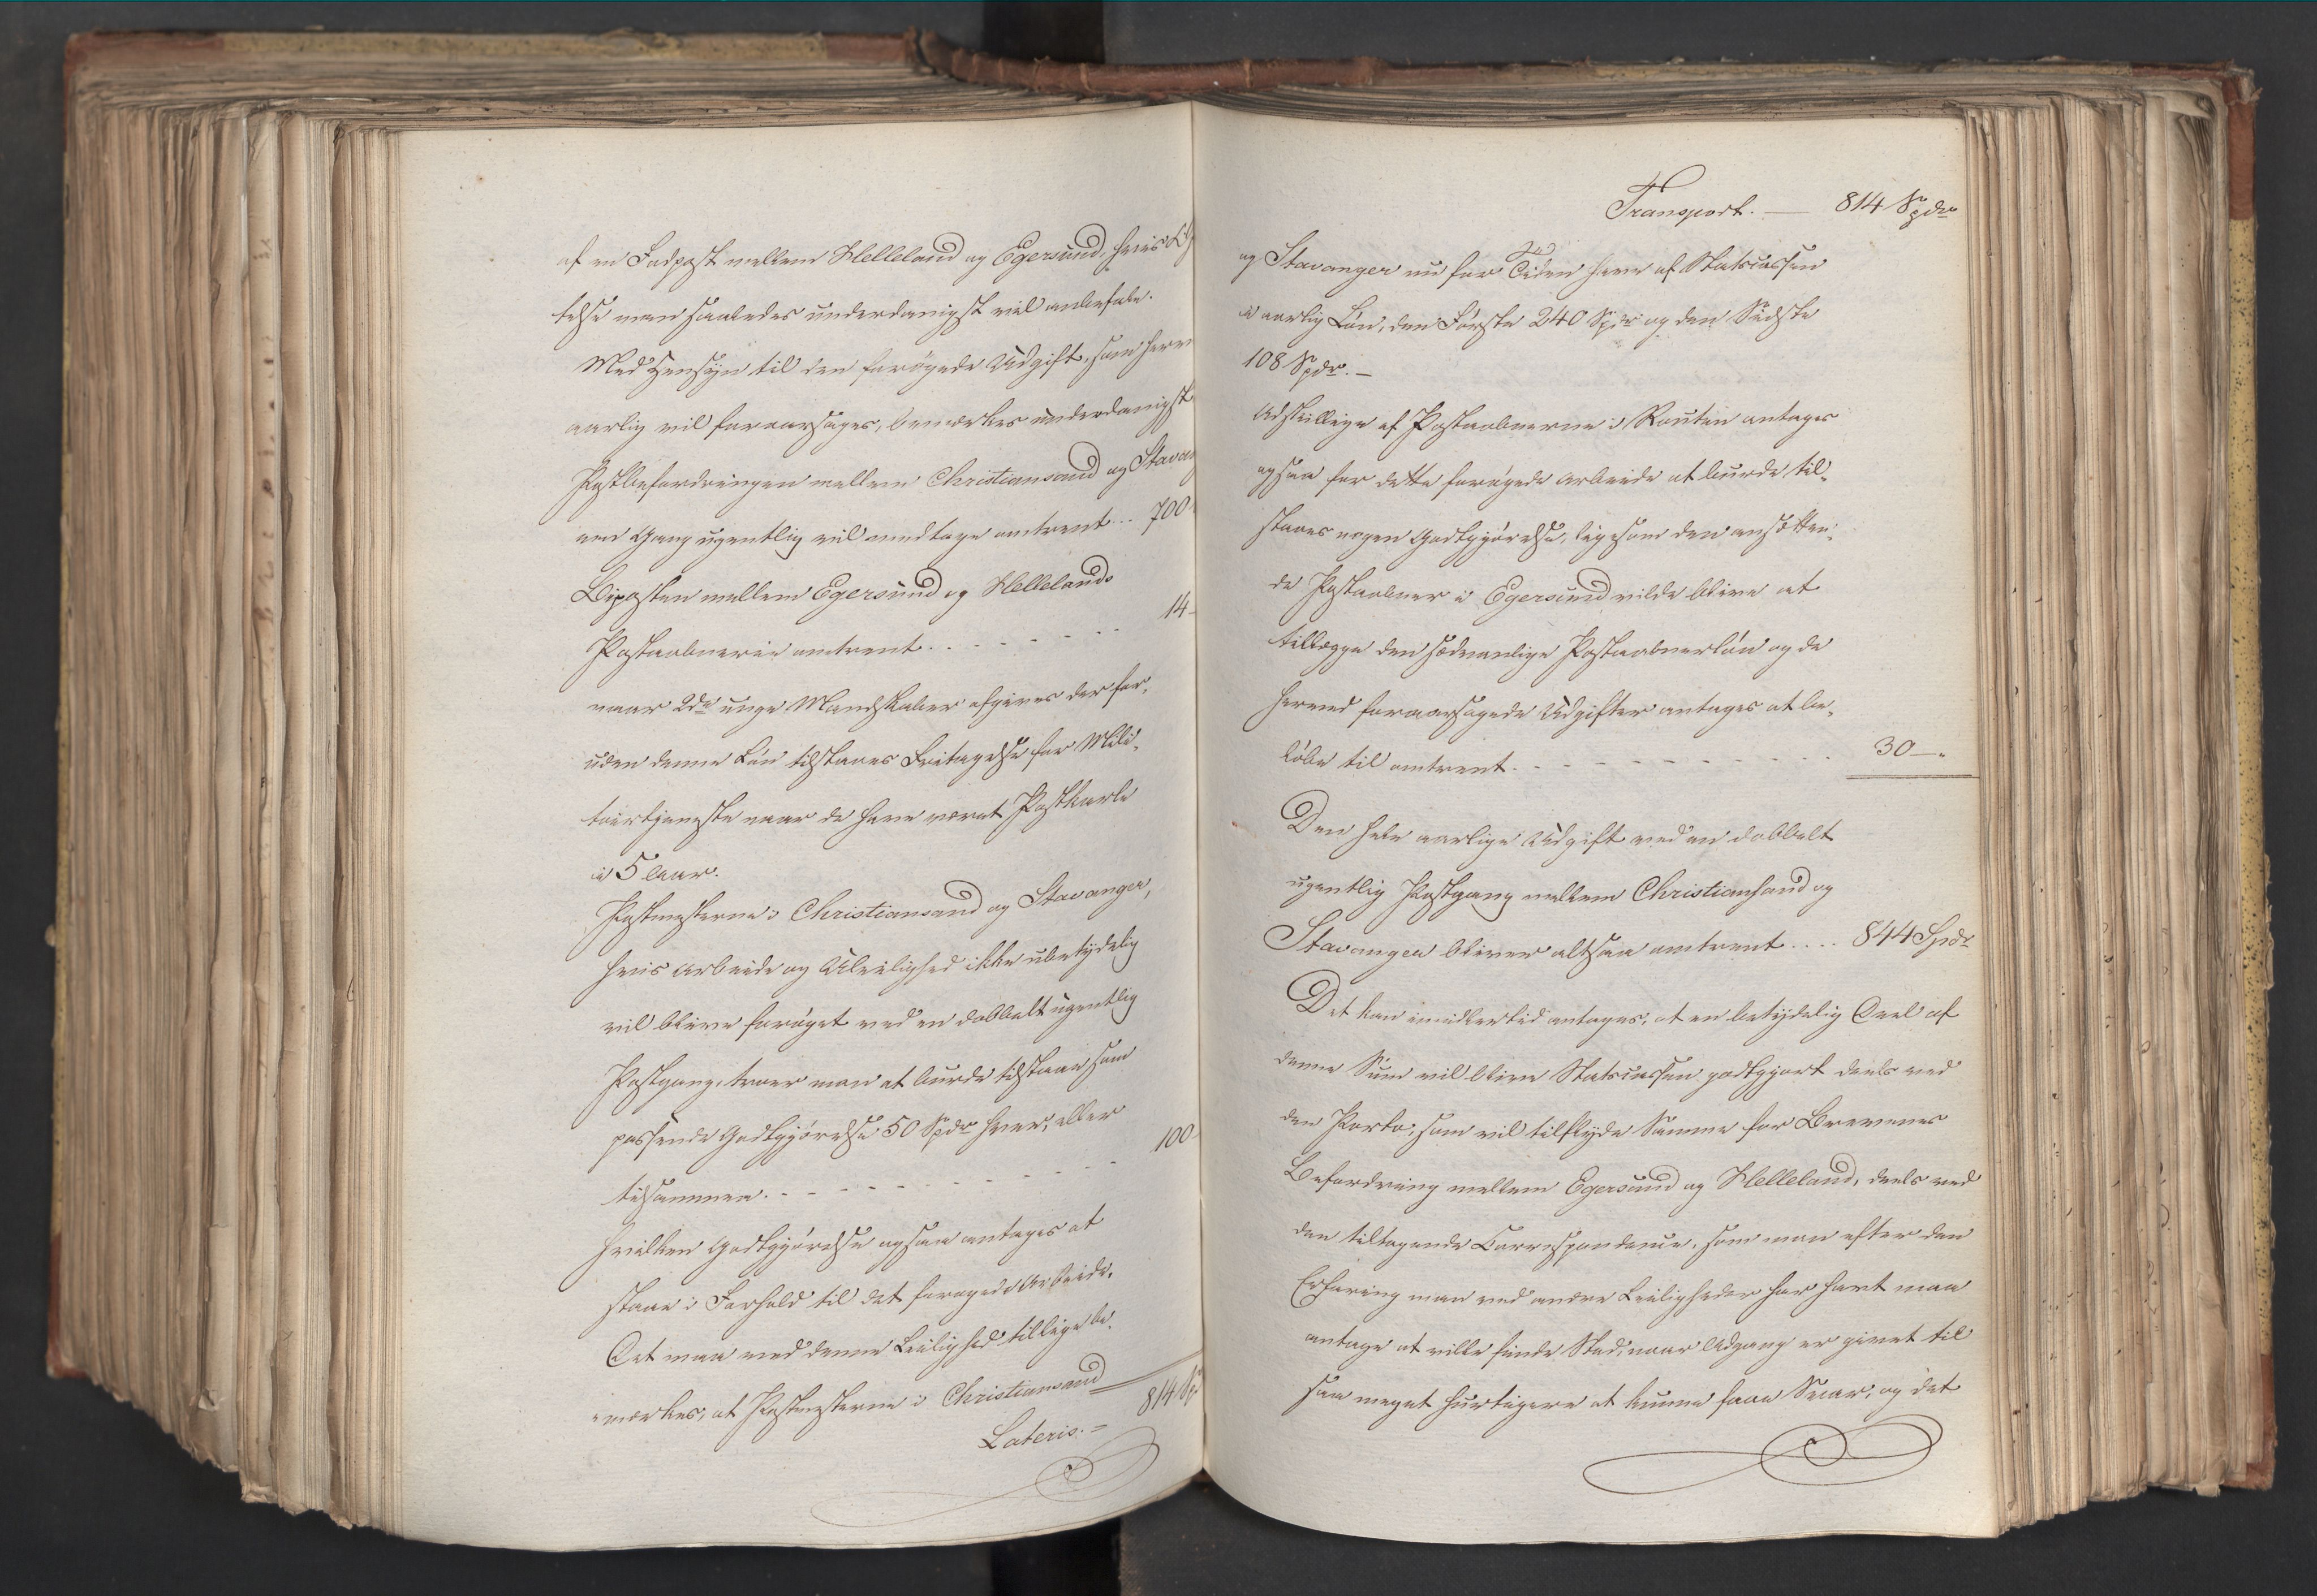 af en Fodpost mellem Helleland og Egersund, hvis Op
telse man saaledes underdanigst vil anbefale.
Med Hensyn til den forøgede Udgift, som herv
aarlig vil foraarsages, bemærkes underdanigst
Postbefordringen mellem Christiansand og Stavan
een Gang ugentlig vil medtage omtrent... 700
Biposten mellem Egersund og Hellelands
Postaabneri omtrent......... 14-
naar 2de unge Mandskaber afgives der for-
uden denne Løn tilstaaes Fritagelse for Mili-
tairtjeneste naar de have været Postkarle
i 5 Aar.
Postmesterne i Christiansand og Stavanger,
hvis Arbeide og Uleilighed ikke ubetydelig
vil blive forøget ved en dobbelt ugentlig
Postgang, troer man at burde tilstaaes som
passende Godtgjørelse 50 Spdr hver, eller
tilsammen......... 100-
hvilken Godtgjørelse ogsaa antages at
staae i Forhold til det forøgede Arbeide.
Det maa ved denne Leilighed tillige be-
mærkes, at Postmesterne i Christiansand
Lateris.= 814 Sp
Transport. — 814 Spdr
og Stavanger nu for Tiden have af Statscassen
i aarlig Løn, den Første 240 Spdr og den Sidste
108 Spdr.—
Adskillige af Postaabnerne i Routen antages
ogsaa for dette forøgede Arbeide at burde til-
staaes nogen Godtgjørelse, ligesom den ansætten-
de Postaabner i Egersund vilde blive at
tillægge den sædvanlige Postaabnerløn og de
herved foraarsagede Udgifter antages at be-
løbe til omtrent............ 30—"
Den hele aarlige Udgift ved en dobbelt
ugentlig Postgang mellem Christiansand og
Stavanger bliver altsaa omtrent.... 844 Spdr
Det kan imidlertid antages, at en betydelig Deel af
denne Sum vil blive Statscassen godtgjort deels ved
den Porto, som vil tilflyde Samme for Brevenes
Befordring mellem Egersund og Helleland, deels ved
den tiltagende Correspondence, som man efter den
Erfaring man ved andre Leiligheder har havt maa
antage at ville finde Sted, naar Adgang er givet til
saa meget hurtigere at kunne faae Svar, og det